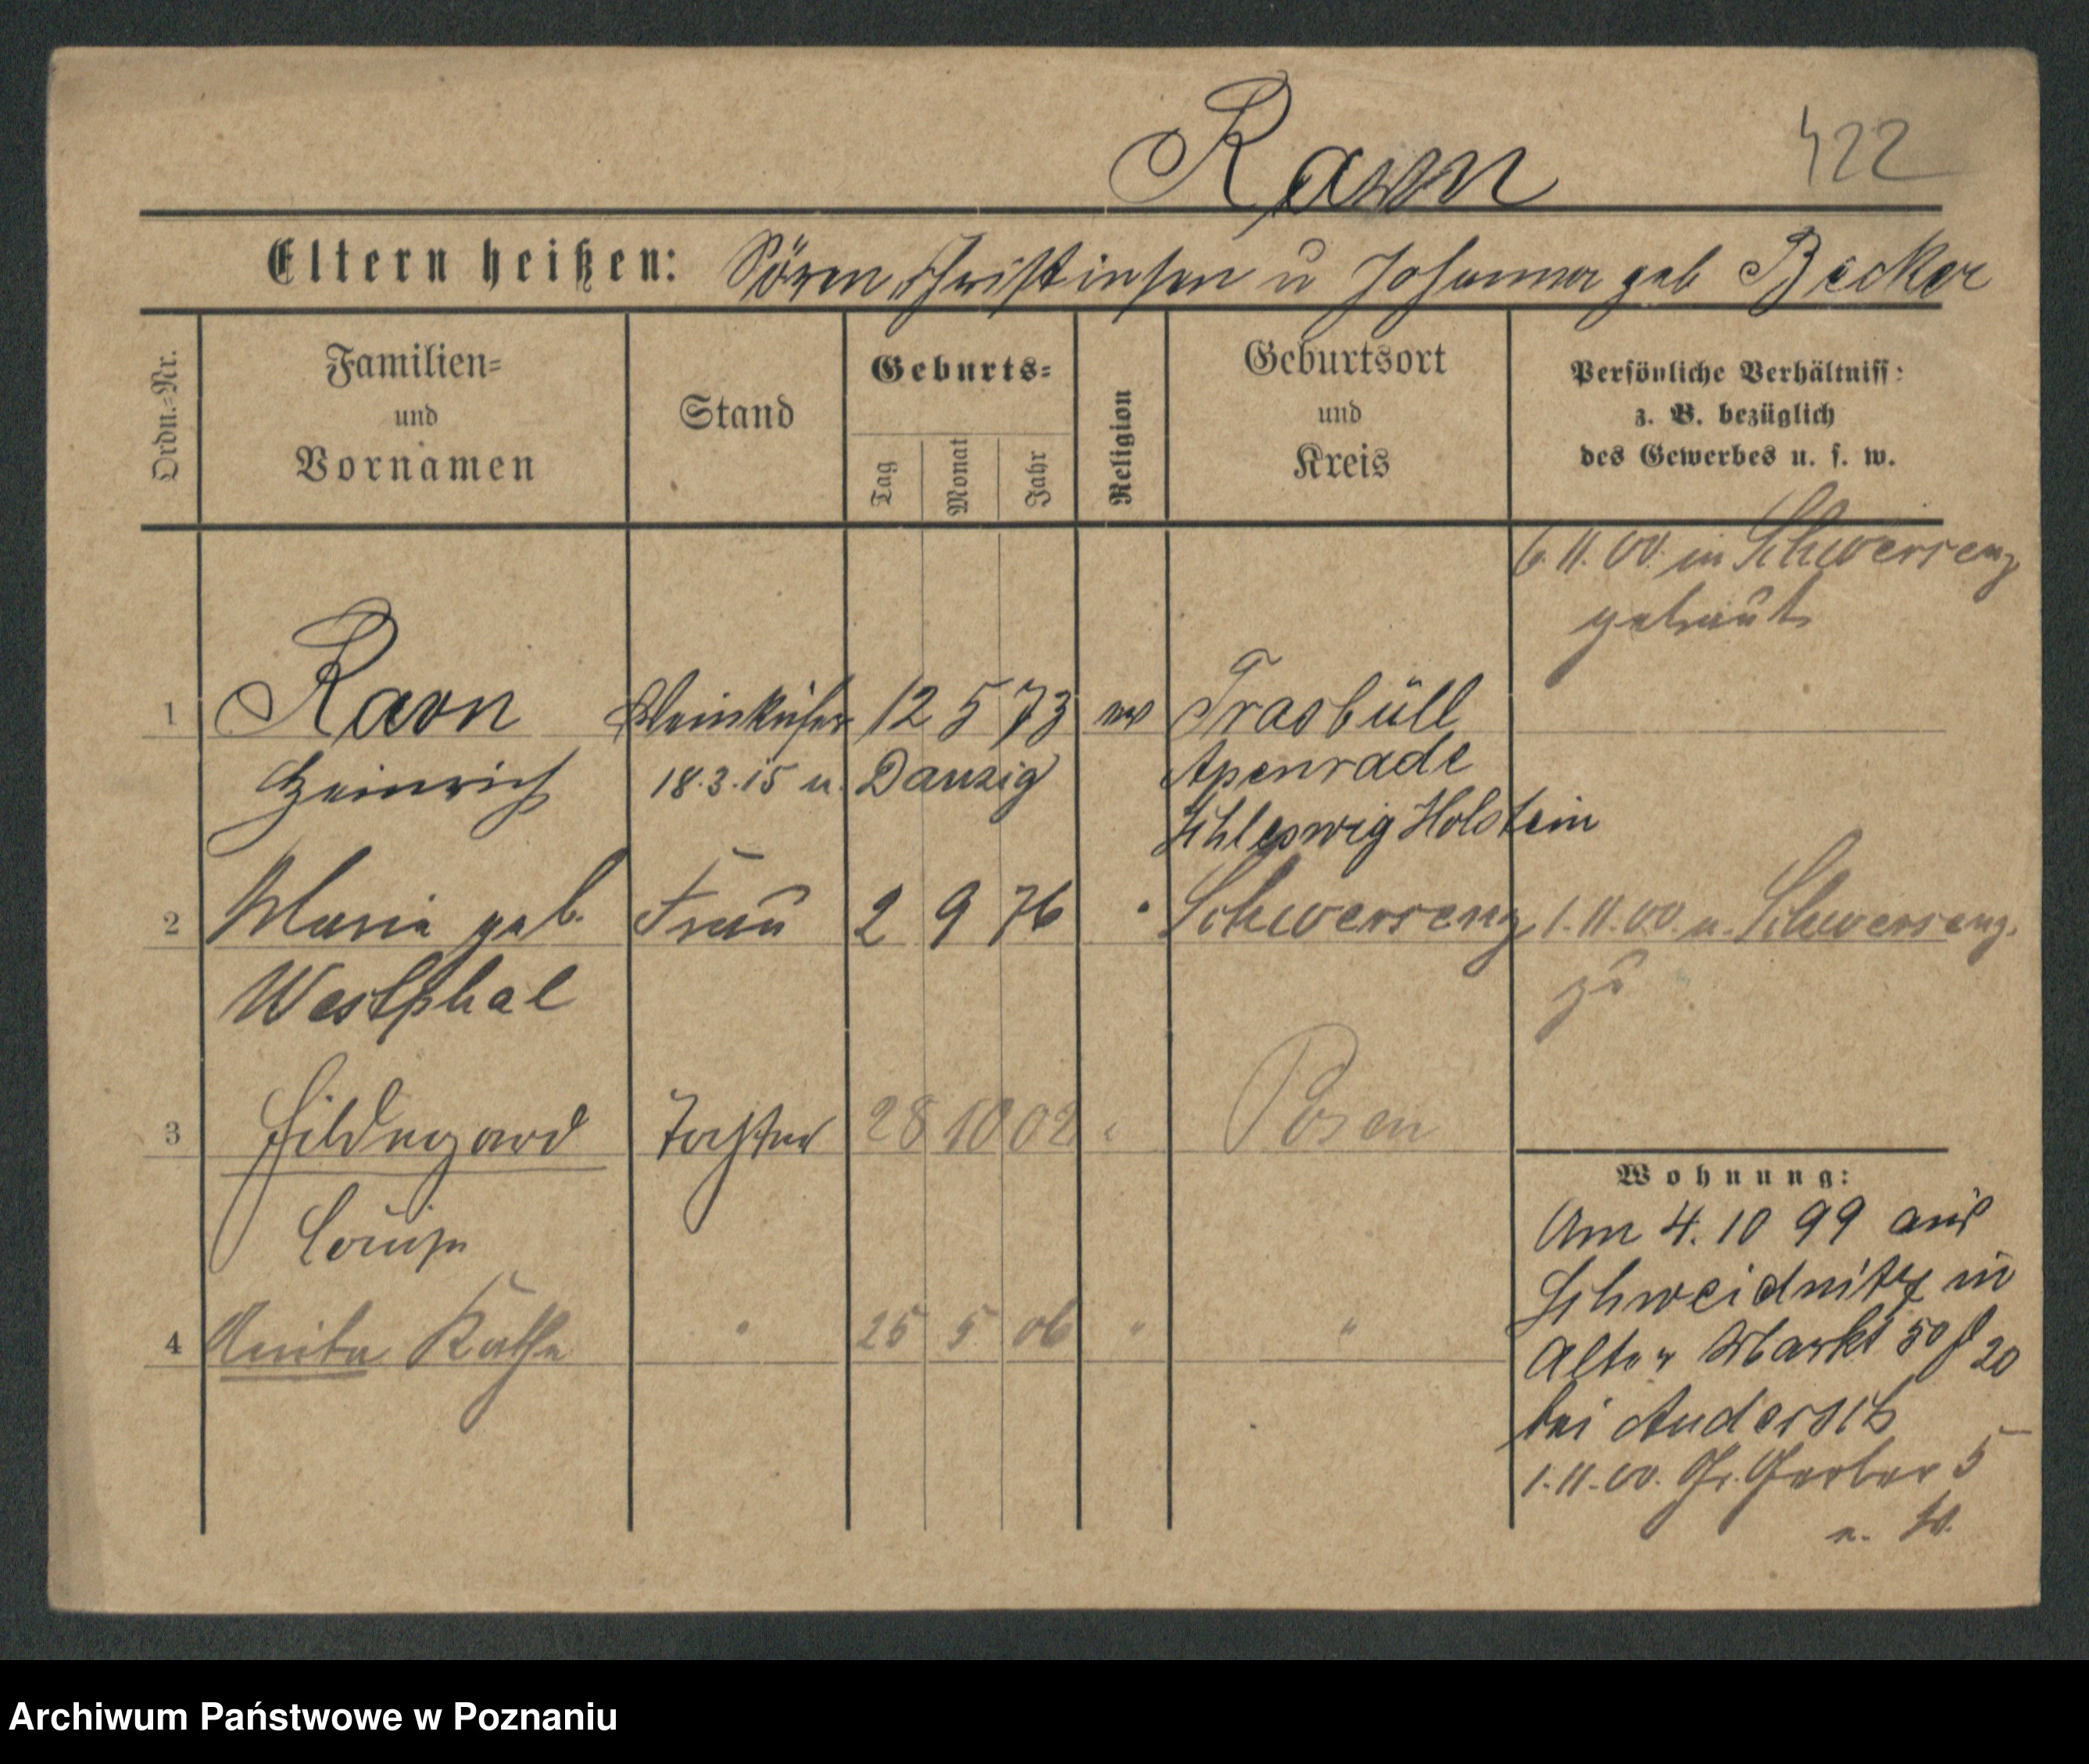 Ravn
422
Eltern heißen: Sören Christinsen u Johanna geb Becker
Ordn.-Nr.
Familien-
und
Vornamen
Stand
Geburts-
Tag
Monat
Jahr
Religion
Geburtsort
und
Kreis
Persönliche Verhältniss:
z. B. bezüglich
des Gewerbes u. s. w.
6.11.00. in Schwersenz
getraut
1 Ravn Weinküfer 12 5 73 ev Trasbüll
Heinrich 18.3.15 n. Danzig Apenrade
Schleswig Holstein
2 Maria geb. Frau 2 9 76 " Schwersenz 1.11.00. v. Schwersenz.
Westphal zu
3 Hildegard Tochter 28 10 02 " Posen
Louise
4 Anita Käthe " 25 5 06 " "
Wohnung:
Am 4.10 99 aus
Schweidnitz in
Alter Markt 50 20
bei Andersch
1.11.00. Gr. Gerber 5